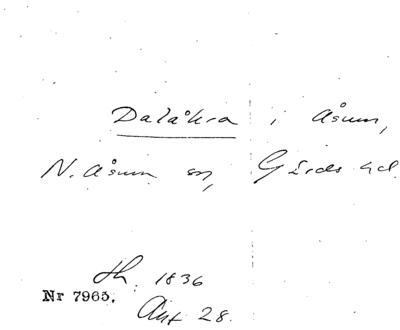 Dalåkra i Åsum,
N. Åsum sn, Gärds hd.
Th. 1836
Nr 7965.
Ant 28.